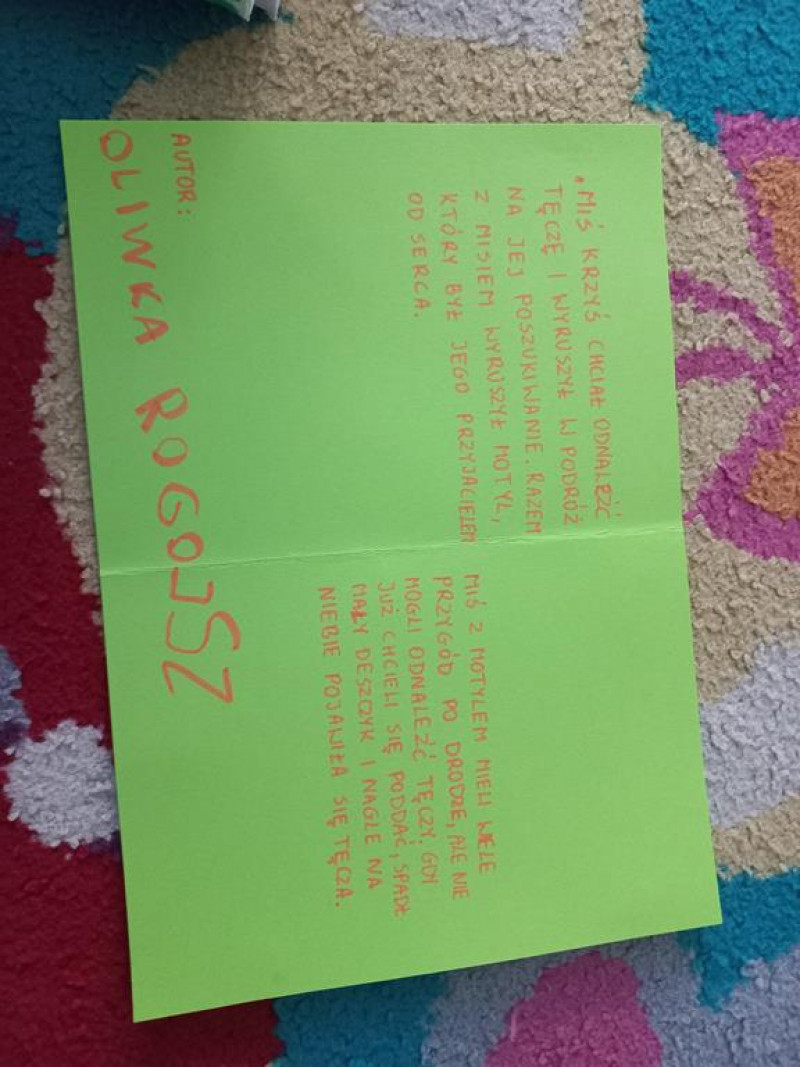 . MIŚ KRZYŚ CHCIAŁ ODNALEŹĆ
TĘCZĘ I WYRUSZYŁ W PODRÓŻ
NA JEJ POSZUKIWANIE. RAZEM
Z MISIEM WYRUSZYŁ MOTYL,
KTÓRY BYŁ JEGO PRZYJACIELEM
OD SERCA.
MIŚ Z MOTYLEM MIELI WIELE
PRZYGÓD PO DRODZE, ALE NIE
MOGLI ODNALEŹĆ TĘCZY. GDY
JUŻ CHCIELI SIĘ PODDAĆ, SPADŁ
MAŁY DESZCZYK I NAGLE NA
NIEBIE POJAWIŁA SIĘ TĘCZA.
AUTOR:
OLIWKA ROGOJSZ